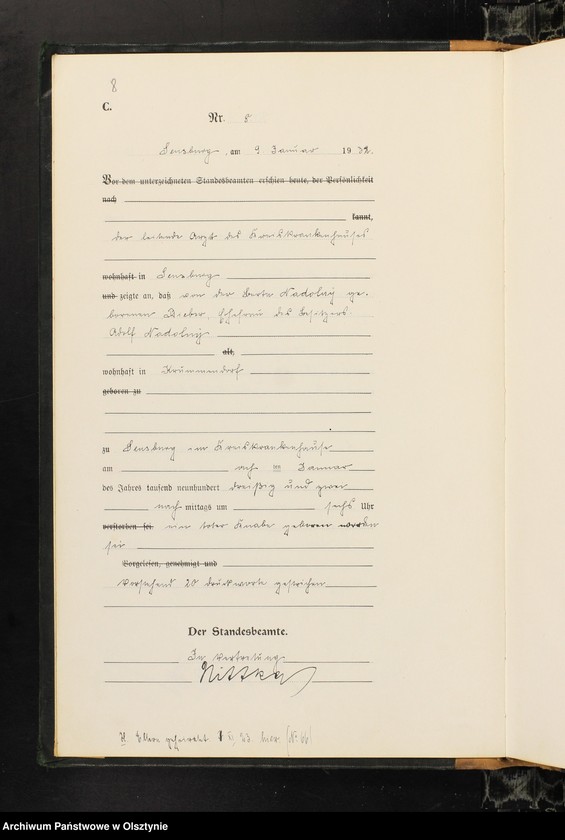 8
C.
Nr. 8
Sensburg, am 9. Januar 1932.
Vor dem unterzeichneten Standesbeamten erschien heute, der Persönlichkeit
nach
kannt,
der leitende Arzt des Kreiskrankenhauses
wohnhaft in Sensburg
und zeigte an, daß von der Berta Nadolny ge-
borenen Rieber, Ehefrau des Besitzers
Adolf Nadolny
alt,
wohnhaft in Krummendorf
geboren zu
zu Sensburg im Kreiskrankenhause
am acht ten Januar
des Jahres tausend neunhundert dreißig und zwei
nach mittags um sechs Uhr
verstorben sei. ein toter Knabe geboren worden
sei
Vorgelesen, genehmigt und
Vorstehend 20 Druckworte gestrichen
Der Standesbeamte.
In Vertretung
Nittka
H Eltern geheiratet 23.
Archiwum Państwowe w Olsztynie